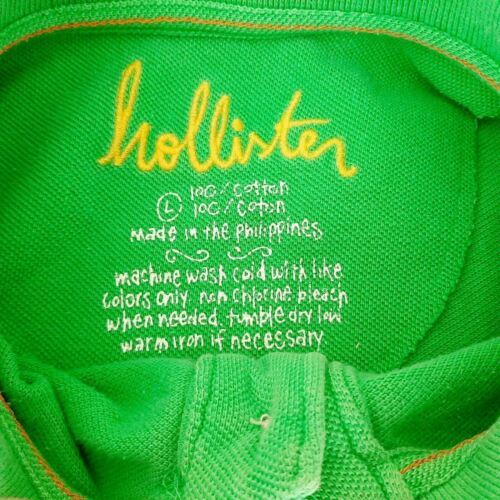 hollister
100/cotton
L 100/coton
made in the philippines
machine wash cold with like
colors only. non chlorine bleach
when needed. tumble dry low
warm iron if necessary.